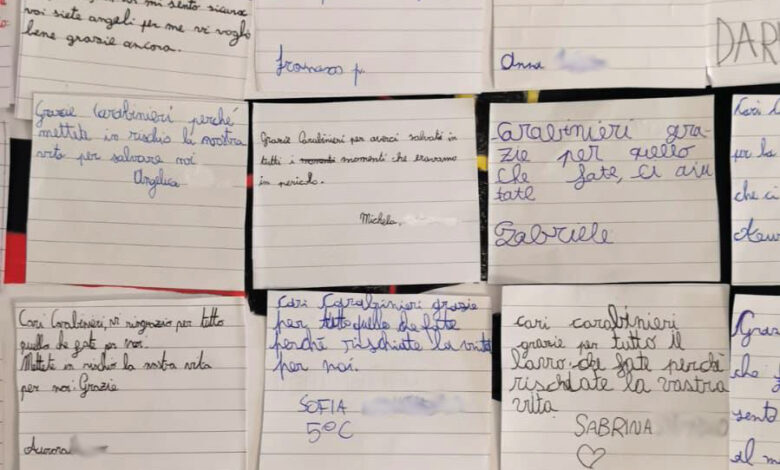 mi sento sicura
voi siete angeli per me vi voglio
bene grazie ancora.
Francesco p.
Anna
DAR
Grazie Carabinieri perché
mettete in rischio la nostra
vita per salvare noi
Angelica
Grazie Carabinieri per averci salvati in
tutti i momenti momenti che eravamo
in pericolo.
Michela
Carabinieri gra-
zie per quello
che fate, ci aiu
tate
Gabriele
Cari
per la
che ci
Cari Carabinieri, vi ringrazio per tutto
quello che fate per noi.
Mettete in rischio la vostra vita
per noi. Grazie
Aurora
Cari Carabinieri grazie
per tutto quello che fate
perché rischiate la vita
per noi.
SOFIA
5°C
cari carabinieri
grazie per tutto il
lavro che fate perchè
rischiate la vastra
vita
SABRINA
Graz
che
sento
al m